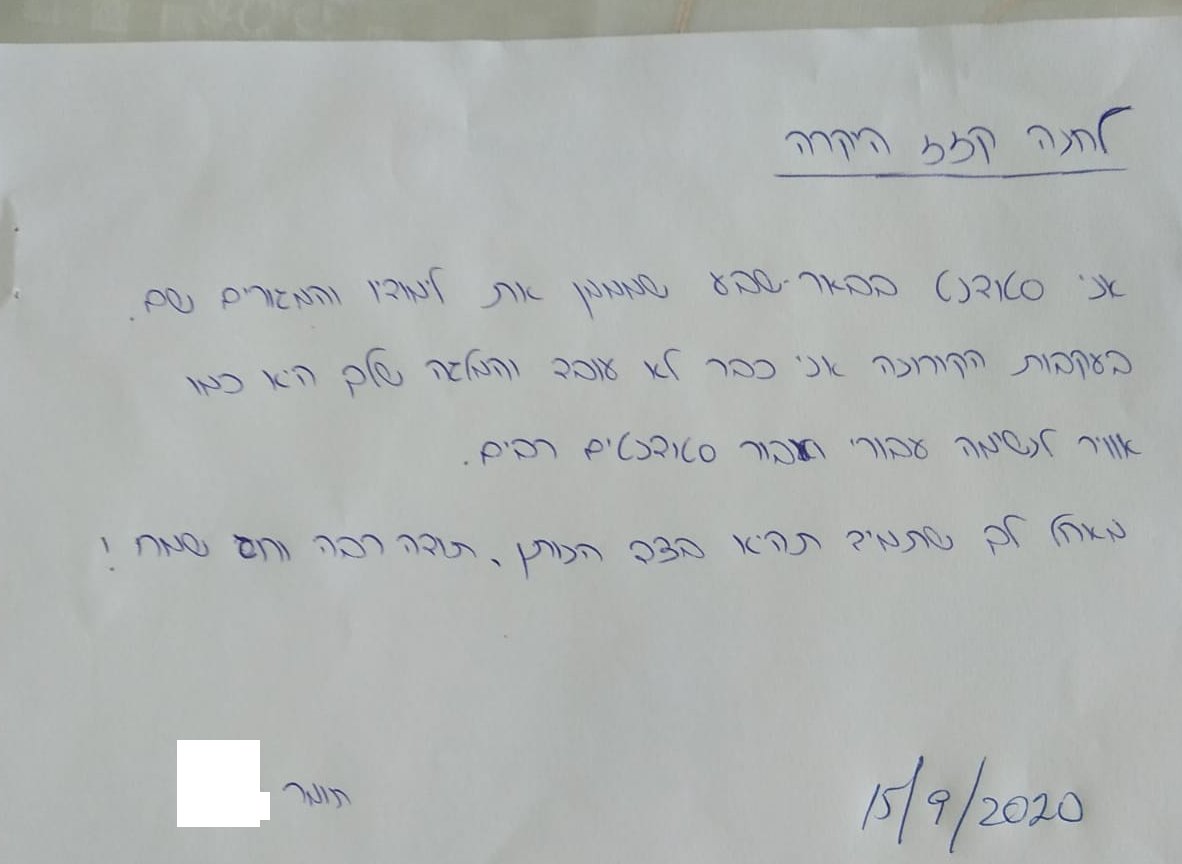 לחנה קזז היקרה
אני סטודנט בבאר-שבע שמממן את לימודיו והמגורים שם.
בעקבות הקורונה אני כבר לא עובד והמלגה שלך היא כמו
אוויר לנשימה עבורי ועבור סטודנטים רבים.
מאחל לך שתמיד תהא בצד הנותן, תודה רבה וחג שמח!
תומר
15/9/2020